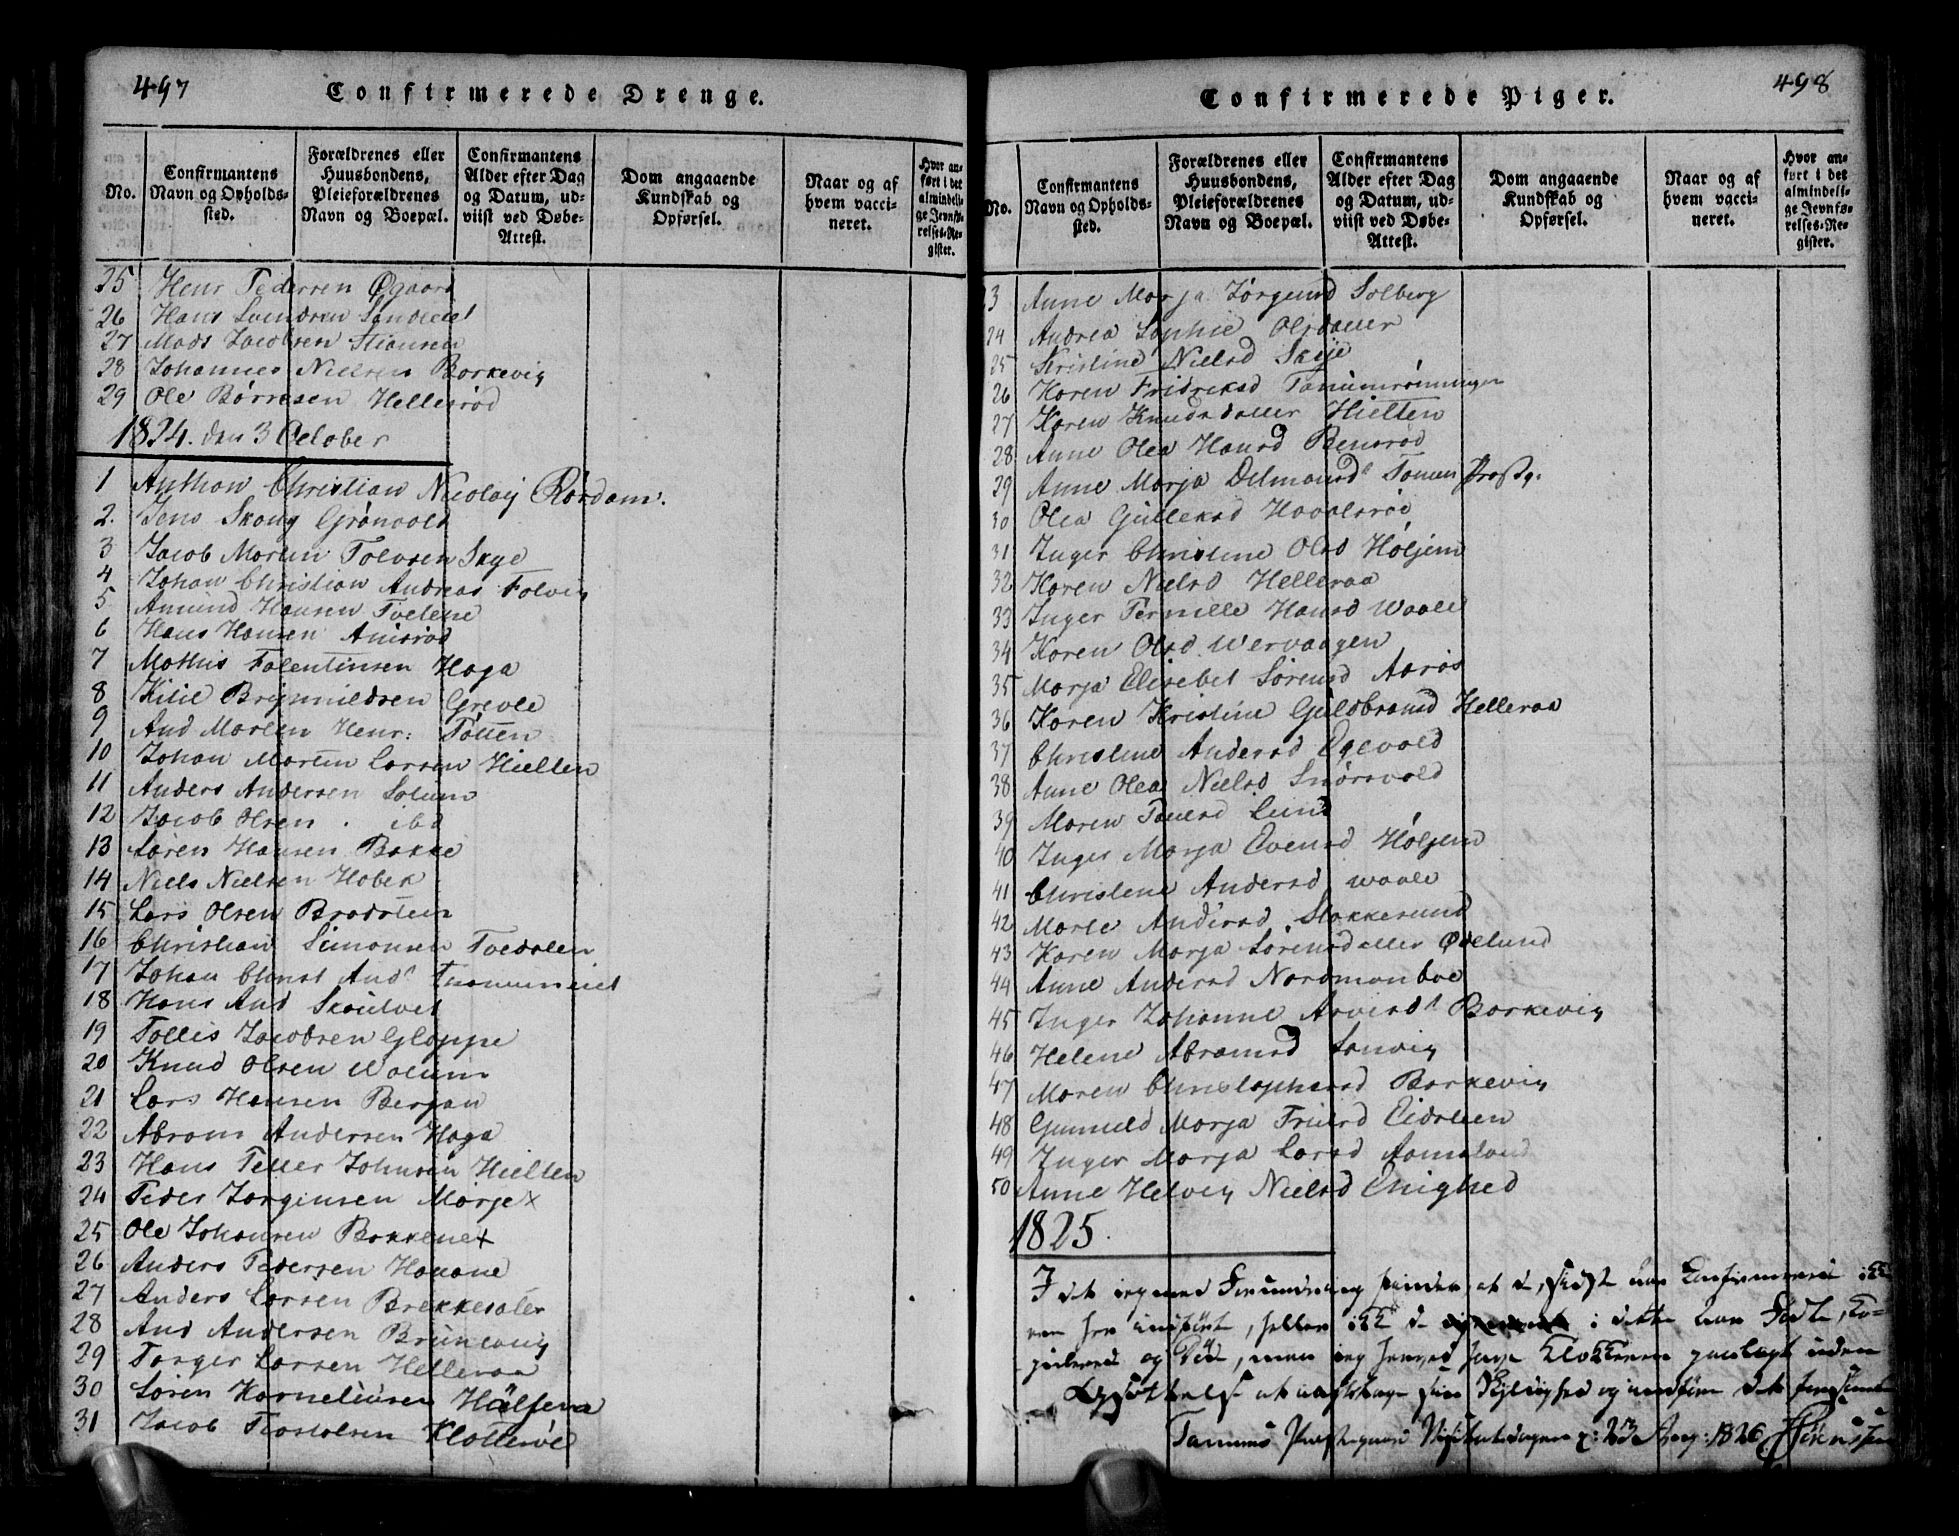 497
Confirmerede Drenge.
No.
Confirmantens Navn og Opholds-sted.
Forældrenes eller Huusbondens, Pleieforældrenes Navn og Boepæl.
Confirmantens Alder efter Dag og Datum, ud-viist ved Døbe-Attest.
Dom angaaende Kundskab og Opførsel.
Naar og af hvem vacci-neret.
Hvor an-ført i det almindeli-ge Jevnfø-relses-Re-gister.
25 Henr Pedersen Øgaard
26 Hans Svendsen
27 Mads Jacobsen Stiansen
28 Johannes Nielsen Barkevig
29 Ole Børresen Hellesrød
1824. den 3 October
1 Anthon Christian Nicolaij Rørdam.
2. Jens Skoug Grønvold
3 Jacob Martin Tolvsen Skye
4 Johan Christian Andreas Folvig
5 Amund Hansen Tvetene
6 Hans Hansen Anisrød
7 Mathis Falentinsen Haga
8 Kilie Brynnildsen Grevle
9 And Martin Henr: Føtten
10 Johan Martin Larsen Hielten
11 Anders Andersen Solum
12 Jacob Olsen . ibd
13 Søren Hansen Bakke
14 Niels Nielsen Hobek
15 Lars Olsen Bradsten
16 Christian Simonsen Tvedalen
17 Johan Christ And
18 Hans And
19 Tollis Jacobsen Gloppe
20 Knud Olsen Walum
21 Lars Hansen Berjan
22 Abram Andersen Haga
23 Hans Petter Johnsen Hielten
24 Peder Jørgensen Marje x
25 Ole Johansen Bakkene x
26 Anders Pedersen Havane
27 Anders Larsen Brekkesater
28 And Andersen Brunevang
29 Torger Larsen Helleraa
30 Søren Karneliusen
31 Jacob
498
Confirmerede Piger.
No.
Confirmantens Navn og Opholds-sted.
Forældrenes eller Huusbondens, Pleieforældrenes Navn og Boepæl.
Confirmantens Alder efter Dag og Datum, ud-viist ved Døbe-Attest.
Dom angaaende Kundskab og Opførsel.
Naar og af hvem vacci-neret.
Hvor an-ført i det almindeli-ge Jevnfø-relses-Re-gister.
23 Anne Marja Jørgensd Solberg
24 Andrea Sophie Olsdatter
25 Kristine Nielsd Skije
26 Karen Fridreksd Tanumrønningen
27 Karen Knudsdatter Hielten
28 Anne Olea Hansd Bensrød
29 Anne Marja Tanum Prostg.
30 Olea Gulleksd Havalsrød
31 Inger Christine Olsd Holjem
32 Karen Nielsd Helleraa
33 Inger Pernille Hansd Waale
34 Karen Olsd Wervaagen
35 Marja Elisebet Sørensd Aarøs
36 Karen Kristine Guldbransd Helleraa
37 Christine Andersd Egevald
38 Anne Olea Nielsd Snørsvald
39 Maren Lund
40 Inger Marja Evensd Holjem
41 Christine Andersd Waale
42 Marte Andersd Stokkesund
43 Karen Marja Sørensdatter Ødelund
44 Anne Andersd Nordmandøe
45 Inger Johanne Arvesd Barkevig
46 Helene Abramsd Sanvig
47 Maren Christophersd Barkevig
48 Gunnild Marja Eidsteen
49 Inger Marja Larsd
50 Anne Helvig Nielsd Enighed
1825.
I det jeg med finder, at de, sidst her Confirmerede ikke
ere her indført, heller ikke de i dette Aar Fødte, Co-
pulerede og Døde, maa jeg herved have Klokkeren paalagt uden
Opsættelse at iagttage sin Skyldighed og indføre det
Tanums Præstegaard d: 23 Aug: 1826